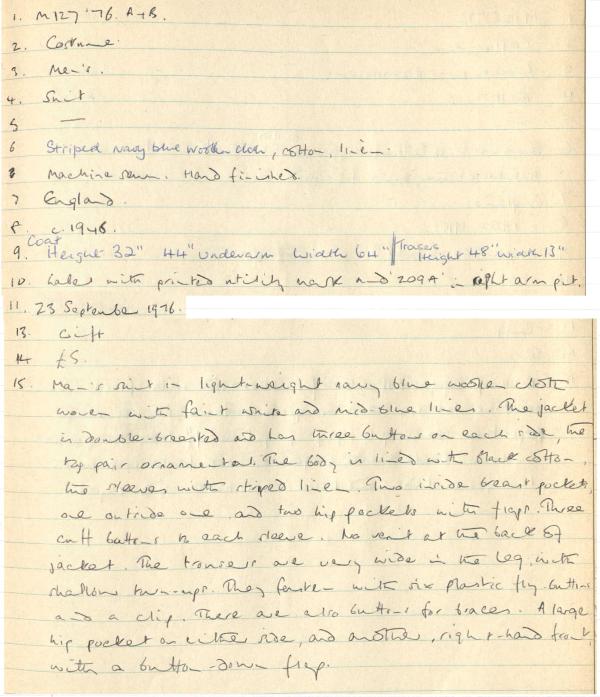 1. M127 '76. A+B.
2. Costume.
3. Men's.
4. Suit
5 —
6 Striped navy blue woollen cloth, cotton, linen.
8 Machine sewn. Hand finished.
7 England.
8. c.1946.
Coat Trousers
9. Height 32" 44" underarm width 64" Height 48" width 13"
10. Label with printed utility mark and '209A' in right arm pit.
11. 23 September 1976.
13. Gift
14 £5.
15. Man's suit in light-weight navy blue woollen cloth
woven with faint white and mid-blue lines. The jacket
is double-breasted and has three buttons on each side, the
top pair ornamental. The body is lined with black cotton,
the sleeves with striped linen. Two inside breast pockets,
one outside one and two hip pockets with flaps. Three
cuff buttons to each sleeve. No vent at the back of
jacket. The trousers are very wide in the leg, with
shallow turn-ups. They fasten with six plastic fly-buttons
and a clip. There are also buttons for braces. A large
hip pocket on either side, and another, right-hand front,
with a button-down flap.